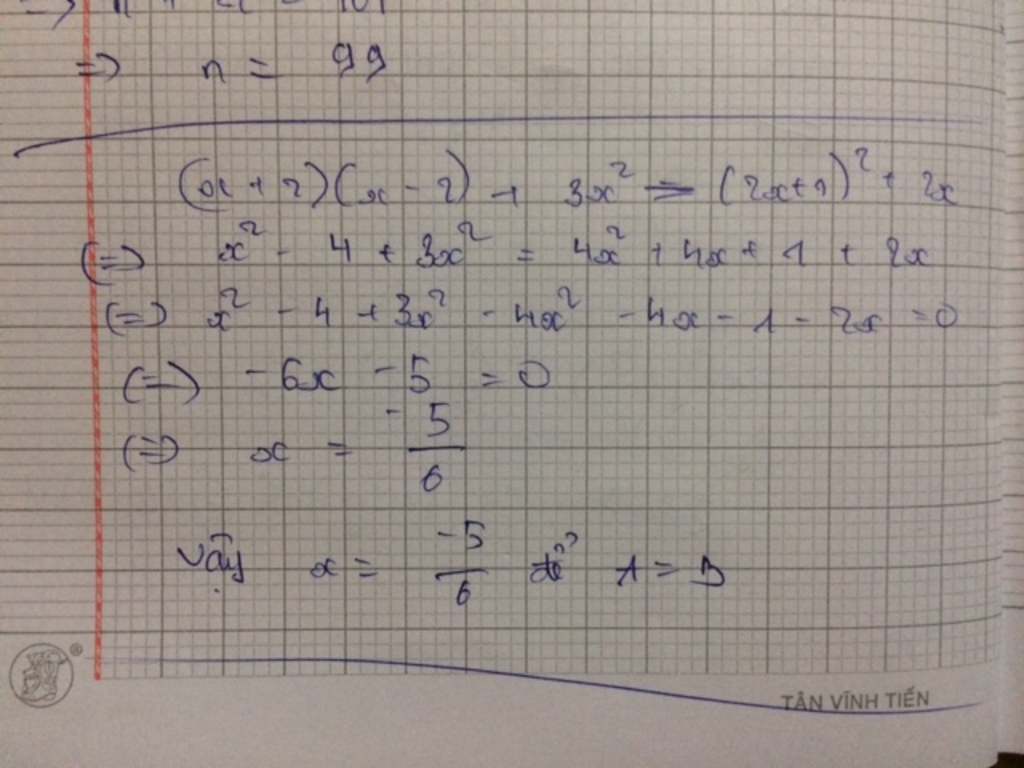 => n = 99
(x + 2)(x - 2) + 3x² = (2x+1)² + 2x
(=) x² - 4 + 3x² = 4x² + 4x + 1 + 2x
(=) x² - 4 + 3x² - 4x² - 4x - 1 - 2x = 0
(=) -6x - 5 = 0
(=) x = -5/6
Vậy x = -5/6 để A = B
®
TÂN VĨNH TIẾN